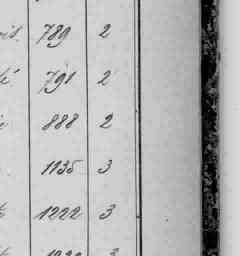 789 2
791 2
888 2
1135 3
1222 3
3